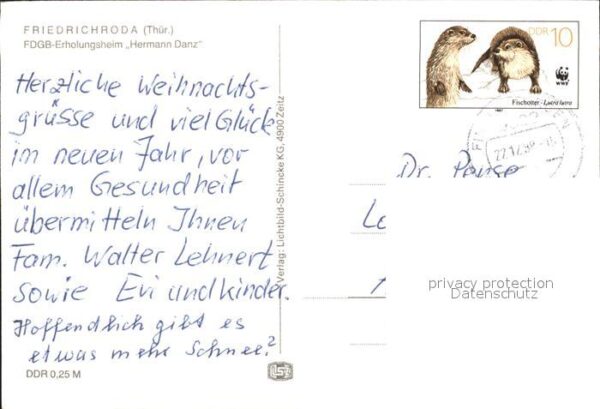 FRIEDRICHRODA (Thür.)
FDGB-Erholungsheim „Hermann Danz"
Herzliche Weihnachts-
grüsse und viel Glück
im neuen Jahr, vor
allem Gesundheit
übermitteln Ihnen
Fam. Walter Lehnert
sowie Evi und Kinder.
Hoffendlich gibt es
etwas mehr Schnee?
DDR 0,25 M
Verlag: Lichtbild-Schincke KG, 4900 Zeitz
DDR 10
WWF
Fischotter - Lutra lutra
22.12.
Dr.
Le
privacy protection
Datenschutz